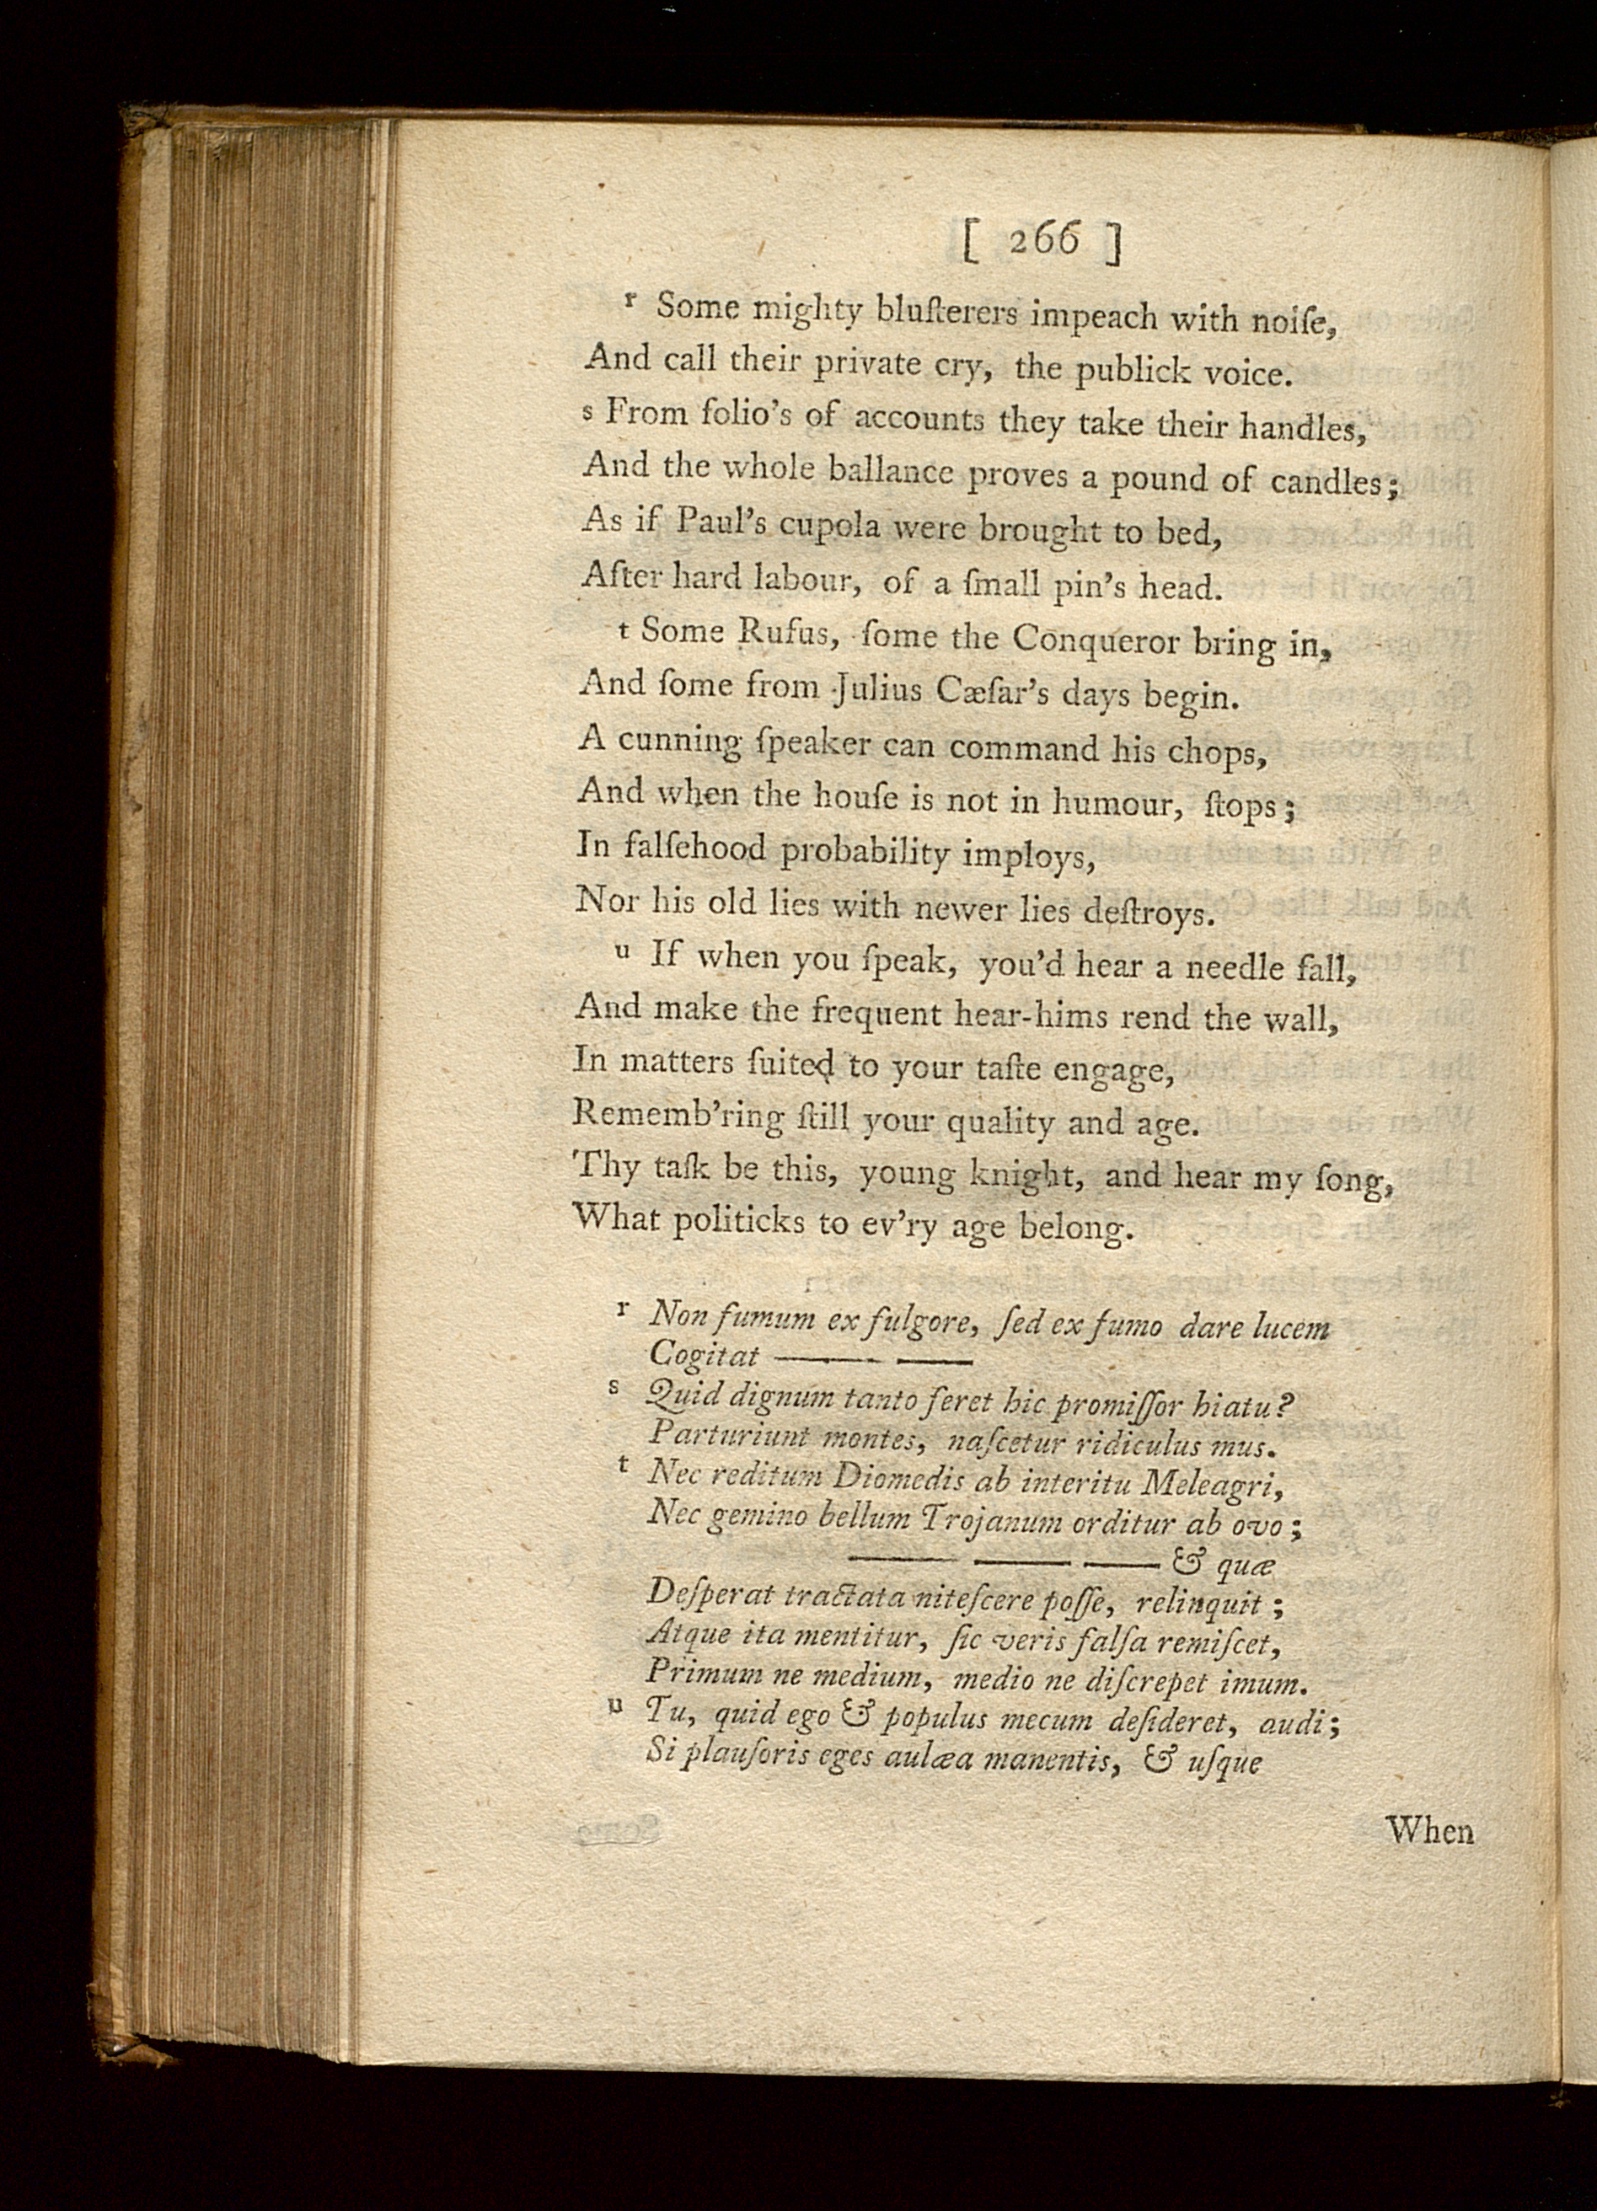 [ 266 ]
r Some mighty bluſterers impeach with noiſe,
And call their private cry, the publick voice.
s From folio's of accounts they take their handles,
And the whole ballance proves a pound of candles;
As if Paul's cupola were brought to bed,
After hard labour, of a ſmall pin's head.
t Some Rufus, ſome the Conqueror bring in,
And ſome from Julius Cæſar's days begin.
A cunning ſpeaker can command his chops,
And when the houſe is not in humour, ſtops;
In falſehood probability imploys,
Nor his old lies with newer lies deſtroys.
u If when you ſpeak, you'd hear a needle fall,
And make the frequent hear-hims rend the wall,
In matters ſuited to your taſte engage,
Rememb'ring ſtill your quality and age.
Thy taſk be this, young knight, and hear my ſong,
What politicks to ev'ry age belong.
r Non fumum ex fulgore, ſed ex fumo dare lucem
Cogitat —— ——
s Quid dignum tanto feret hic promiſſor hiatu?
Parturiunt montes, naſcetur ridiculus mus.
t Nec reditum Diomedis ab interitu Meleagri,
Nec gemino bellum Trojanum orditur ab ovo;
—— —— —— & quæ
Deſperat tractata niteſcere poſſe, relinquit;
Atque ita mentitur, ſic veris falſa remiſcet,
Primum ne medium, medio ne diſcrepet imum.
u Tu, quid ego & populus mecum deſideret, audi;
Si plauſoris eges aulæa manentis, & uſque
When